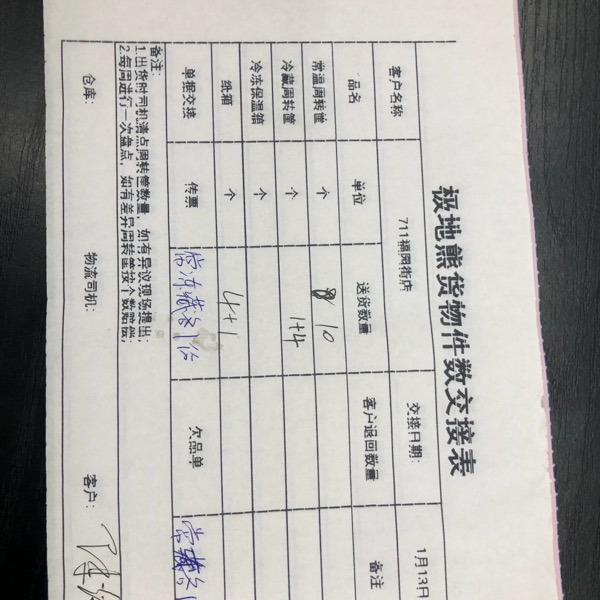 极地熊货物件数交接表
客户名称 711福园街店 交接日期: 1月13日
品名 单位 送货数量 客户退回数量 备注
常温周转筐 个 10
冷藏周转筐 个 1+4
冷冻保温箱 个
纸箱 个 4+1
单据交接 传票 常冻藏各1份 欠品单 常藏各1
备注:
1.出货时司机清点周转筐数量,如有异议现场提出;
2.每周进行一次盘点,如有差异周转筐按个数赔偿;
仓库: 物流司机: 客户: